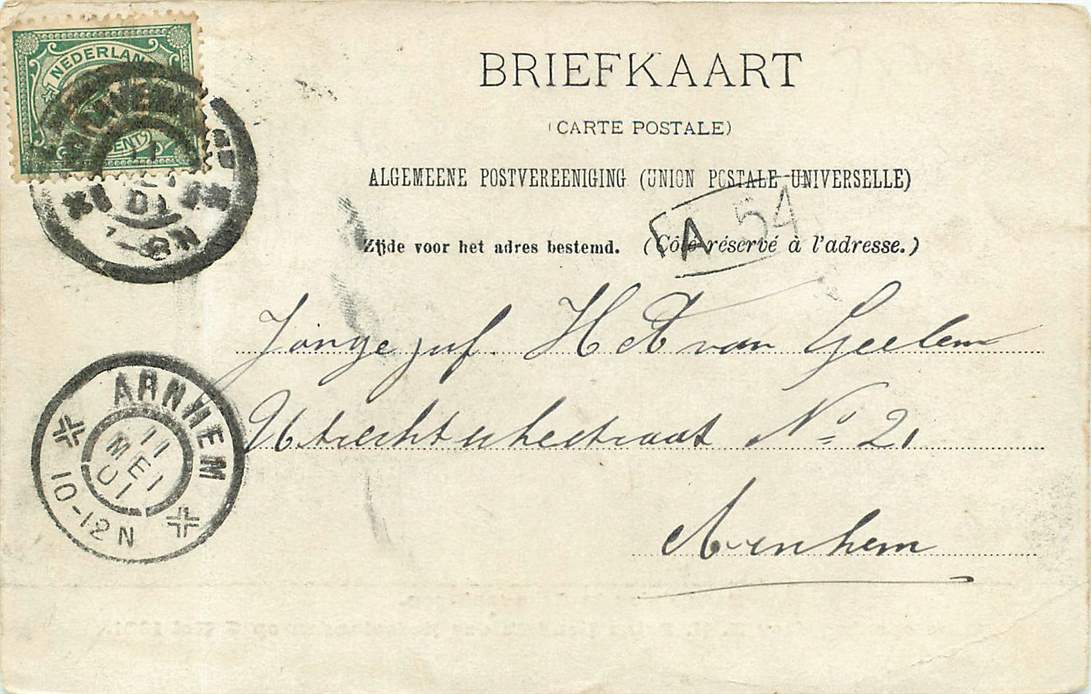 NEDERLAND
CENT
01
BRIEFKAART
(CARTE POSTALE)
ALGEMEENE POSTVEREENIGING (UNION POSTALE UNIVERSELLE)
A 54
Zijde voor het adres bestemd. (Côté réservé à l'adresse.)
Jongejuf. H A van Geelem
Utrechtschestraat No 21
Arnhem
ARNHEM
11
MEI
01
10-12N